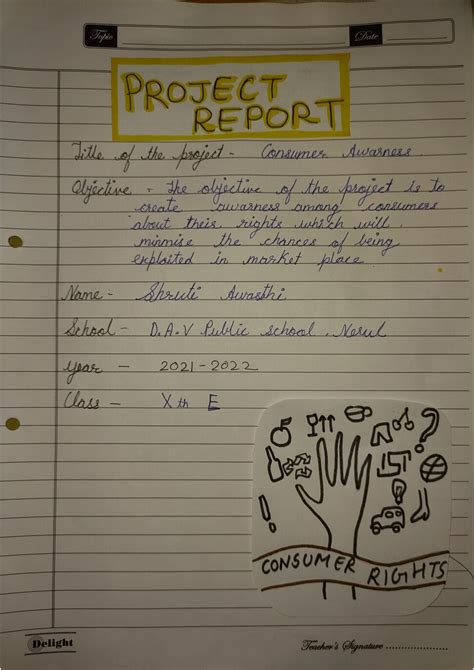 Topic Date
PROJECT
REPORT
Title of the project - Consumer Awarness
Objective - The objective of the project is to
create awarness among consumers
about their rights which will
minmise the chances of being
exploited in market place
Name - Shruti Awasthi
School - D.A.V Public school, Nerul
year - 2021-2022
Class - Xth E
CONSUMER RIGHTS
Delight Teacher's Signature